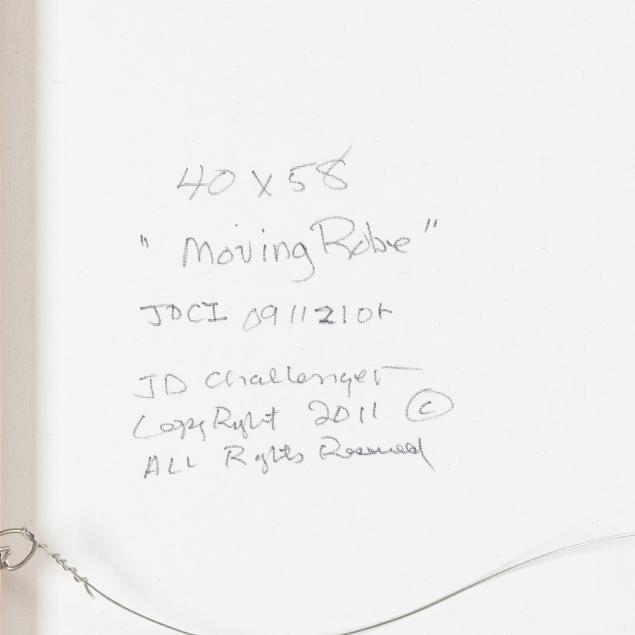 40 x 58
"Moving Robe"
JDCI 0911210t
JD Challenger
CopyRight 2011 ©
ALL Rights Reserved